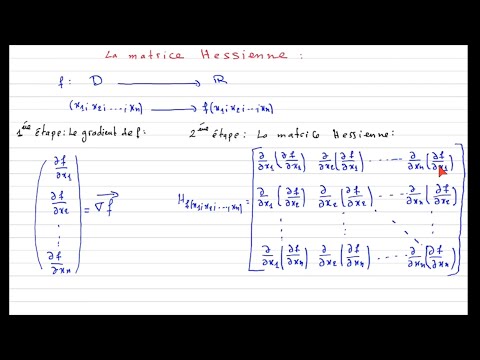 La matrice Hessienne :
f : D → ℝ
(x₁; x₂; ...; xₙ) → f(x₁; x₂; ...; xₙ)
1ère étape: Le gradient de f : 2ème étape: La matrice Hessienne:
(∂f/∂x₁) [∂/∂x₁(∂f/∂x₁) ∂/∂x₂(∂f/∂x₁) ...... ∂/∂xₙ(∂f/∂x₁)]
(∂f/∂x₂) = ∇f H f(x₁; x₂; ...; xₙ) = [∂/∂x₁(∂f/∂x₂) ∂/∂x₂(∂f/∂x₂) ...... ∂/∂xₙ(∂f/∂x₂)]
⋮ ⋮ ⋮ ⋱ ⋮
(∂f/∂xₙ) [∂/∂x₁(∂f/∂xₙ) ∂/∂x₂(∂f/∂xₙ) ...... ∂/∂xₙ(∂f/∂xₙ)]